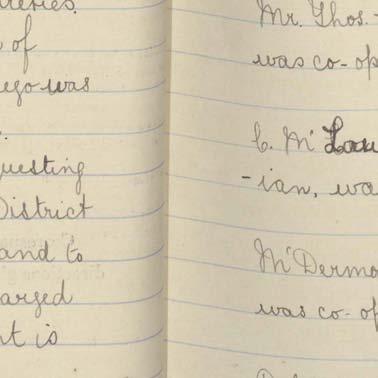 of
ego was
questing
District
and to
arged
nt is
Mr. Thos.
was co-op
C. Mc Lau
-ian, wa
McDermo
was co-op